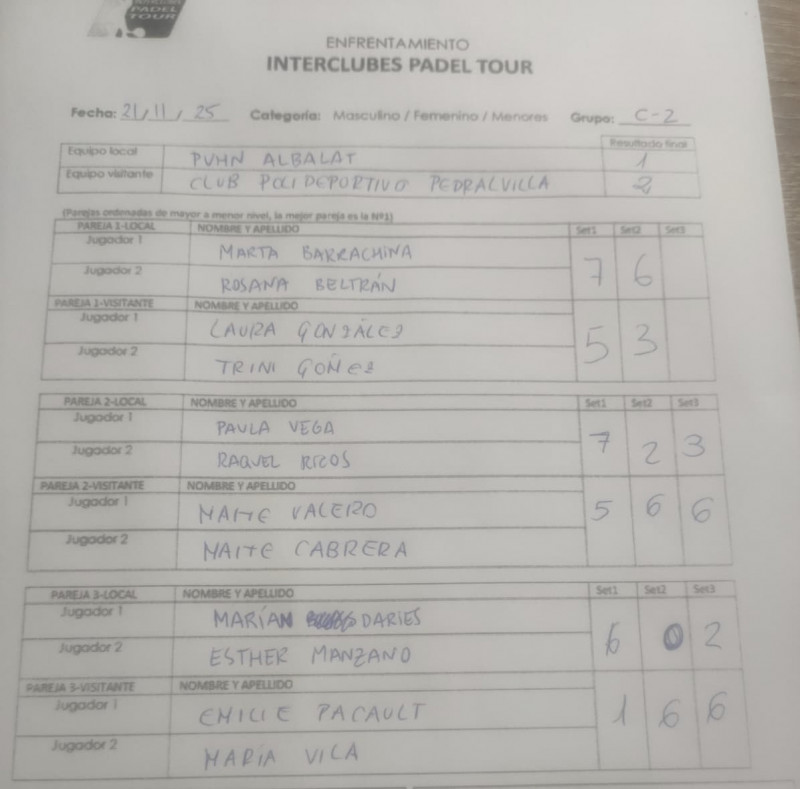 PADEL
TOUR
ENFRENTAMIENTO
INTERCLUBES PADEL TOUR
Fecha: 21/11/25 Categoría: Masculino / Femenino / Menores Grupo: C-2
Resultado final
Equipo local PVHN ALBALAT 1
Equipo visitante CLUB POLIDEPORTIVO PEDRALVILLA 2
(Parejas ordenadas de mayor a menor nivel, la mejor pareja es la Nº1)
PAREJA 1-LOCAL NOMBRE Y APELLIDO Set1 Set2 Set3
Jugador 1 MARTA BARRACHINA
7 6
Jugador 2 ROSANA BELTRÁN
PAREJA 1-VISITANTE NOMBRE Y APELLIDO
Jugador 1 LAURA GONZÁLEZ
5 3
Jugador 2 TRINI GOÑEZ
PAREJA 2-LOCAL NOMBRE Y APELLIDO Set1 Set2 Set3
Jugador 1 PAULA VEGA
7 2 3
Jugador 2 RAQUEL RICOS
PAREJA 2-VISITANTE NOMBRE Y APELLIDO
Jugador 1 MAITE VALERO
5 6 6
Jugador 2 MAITE CABRERA
PAREJA 3-LOCAL NOMBRE Y APELLIDO Set1 Set2 Set3
Jugador 1 MARÍAN DARIES
6 0 2
Jugador 2 ESTHER MANZANO
PAREJA 3-VISITANTE NOMBRE Y APELLIDO
Jugador 1 EMILIE PACAULT
1 6 6
Jugador 2 MARÍA VILA